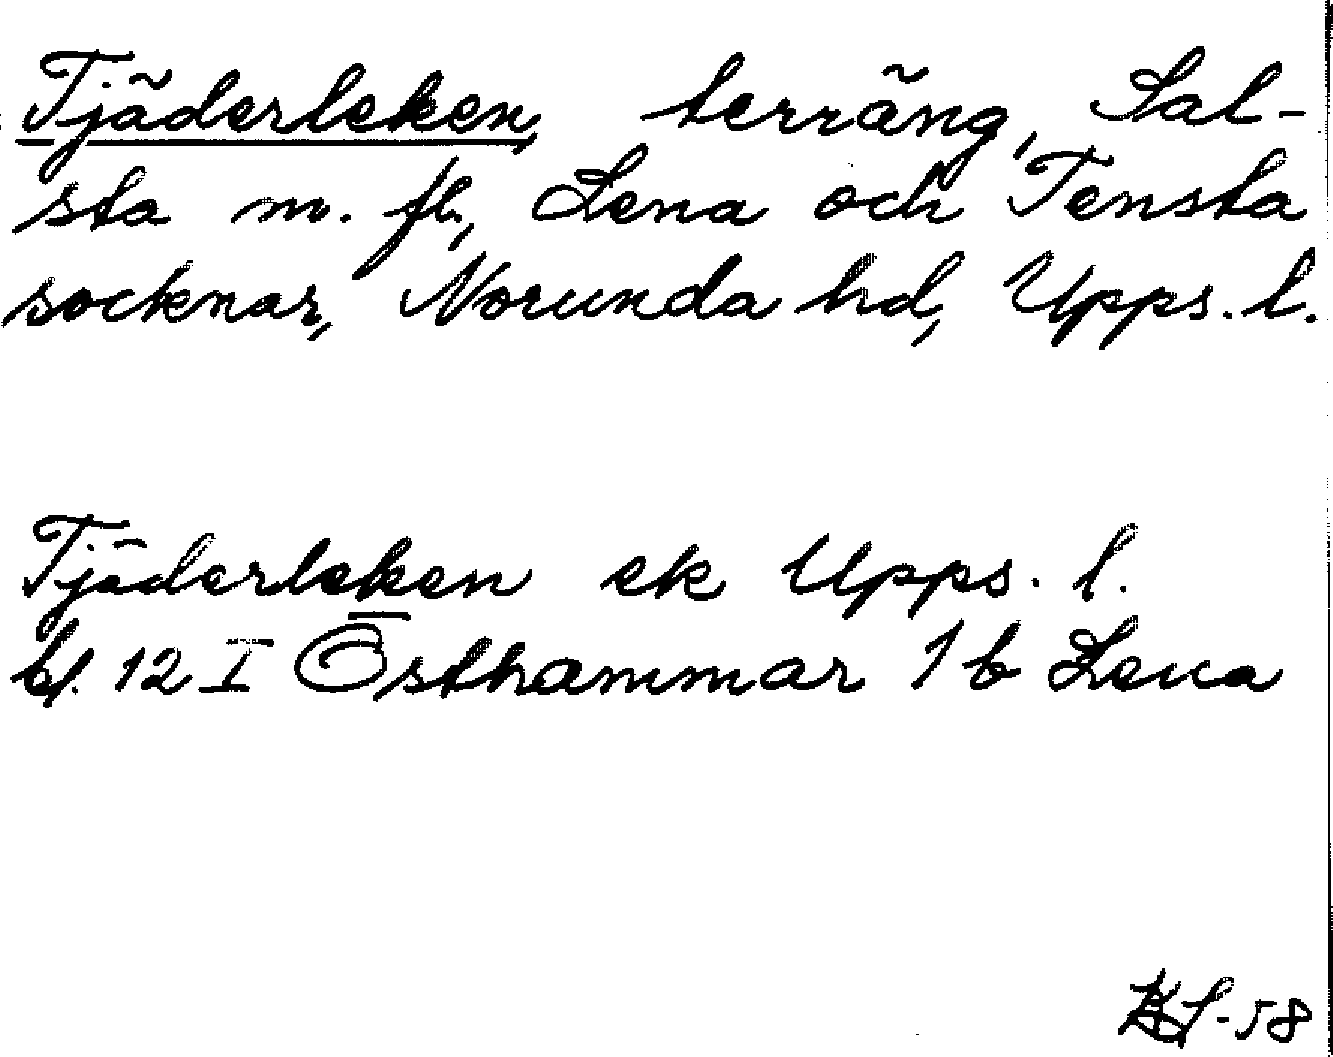 Tjäderleken, terräng, Sal-
sta m. fl., Lena och Tensta
socknar, Norunda hd, Upps. l.
Tjäderleken ek Upps. l.
bl. 12 I Östhammar 1 b Lena
-58